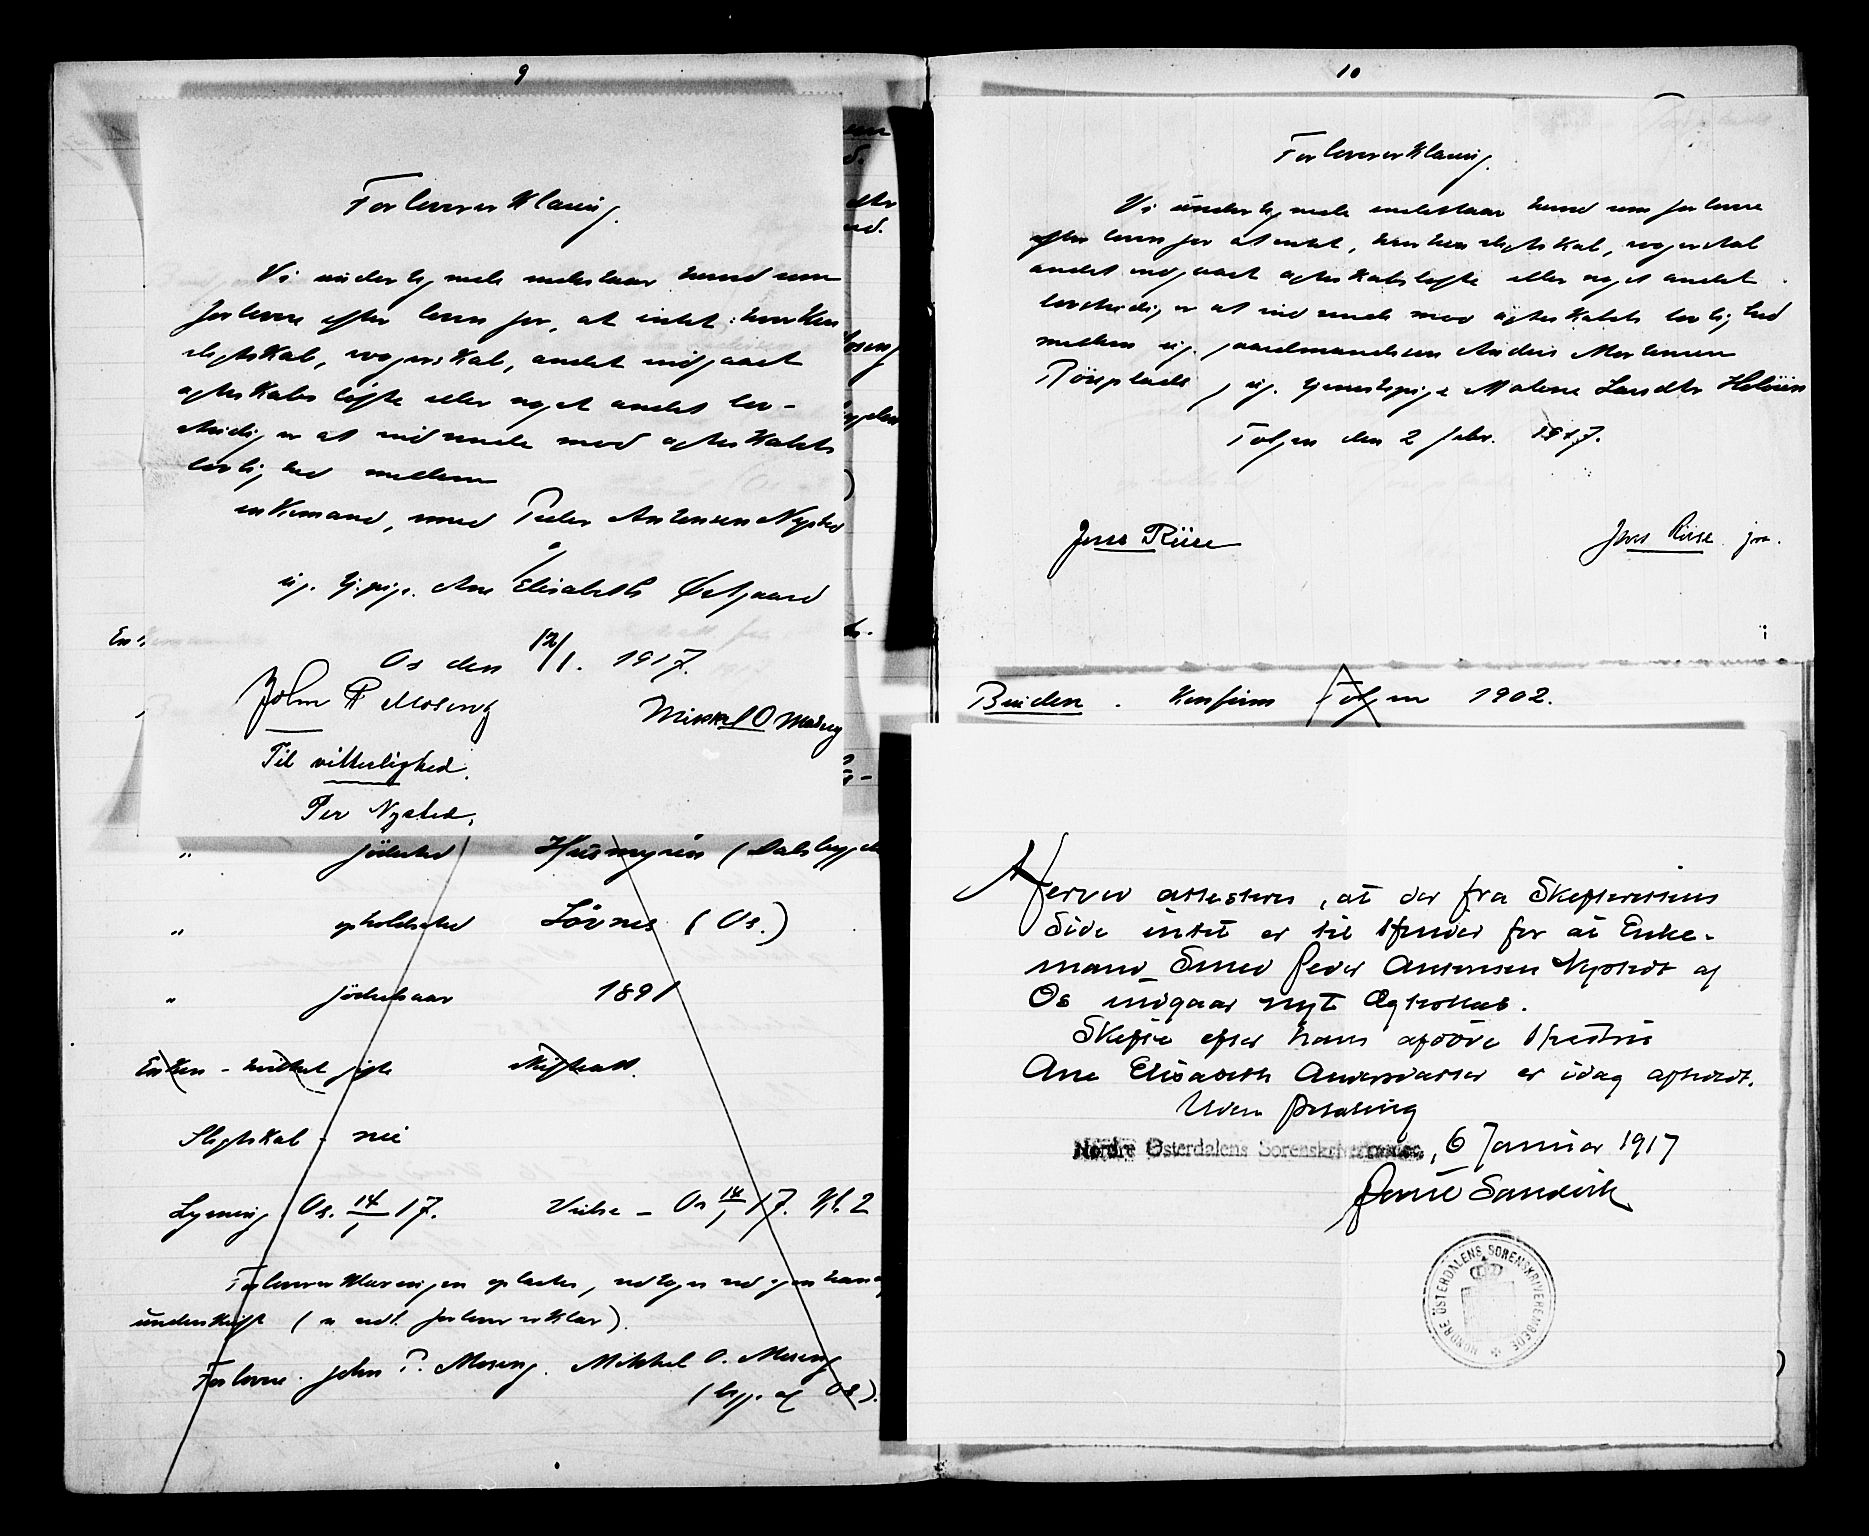 9
Forlovererklæring.
Vi undertegnede indestaar herved som
forlovere efter loven for, at intet, hverken
slegtskab, svogerskab, andet indgaaet
egteskabs løfte eller noget andet lov-
stridig er at indvende mod egteskabets
lovlighed mellem
enkemand, smed Peder Antonsen Nysted
og
ug. tj.pige. Ane Elisabeth Østgaard
Os den 12/1. 1917.
John P Moseng
Mikkel O Moseng
Til vitterlighed.
Per Nysted.
" fødested Husmyren (Dalsbygda
" opholdssted Løvnes (Os.)
" fødselsaar 1891
Enken - hvilket gifte
Skifteatt.
Slegtskab - nei
Lysning Os. 14/1 17. Vielse - Os 14/1 17. Kl. 2
Forlovererklæringen oplæstes,
underskrift (se vedl. forlovererklær).
Forlovere. John P. Moseng. Mikkel O. Moseng
(begge af Os).
10
Forlovererklæring.
Vi undertegnede indestaar herved som forlovere
efter loven for at intet, hverken slegtskab, svogerskab
andet indgaaet egteskabsløfte eller noget andet
lovstridig er at indvende mod egteskabets lovlighed
mellem ug. gaardmandssøn Anders Mortensen
Røseplads, ug. tjenestepige Malene Larsdtr Holøien
Tolgen den 2 febr. 1917.
Jens Riise
Jens Riise jun.
Bruden. Konfirm Tolgen 1902.
Herved attesteres, at der fra Skifterettens
Side intet er til Hinder for at Enke-
mand Smed Peder Antonsen Nystedt af
Os indgaar nyt Ægteskab.
Skifte efter hans afdøde Hustru
Ane Elisabeth Andersdatter er idag afholdt.
Uden Betaling
Nordre Østerdalens Sorenskriverembede, 6 Januar 1917
Sandvik
NORDRE ØSTERDALENS SORENSKRIVEREMBEDE